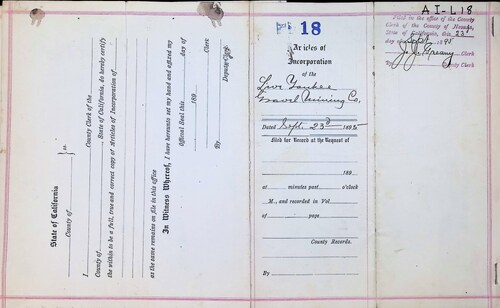 State of California
County of
ss.
I, County Clerk of the
County of , State of California, do hereby certify
the within to be a full, true and correct copy of Articles of Incorporation of
as the same remains on file in this office
In Witness Whereof, I have hereunto set my hand and affixed my
Official Seal this day of
189 Clerk
By Deputy Clerk
18
Articles of
Incorporation
of the
Live Yankee
Gravel Mining Co.
Dated Sept. 23d 1895
Filed for Record at the Request of
189
at minutes past o'clock
M., and recorded in Vol.
of page
County Records.
By
A I-L 18
Filed in the office of the County
Clerk of the County of Nevada,
State of California, this 23d
day of Sept 1895
J. J. Greany
County Clerk